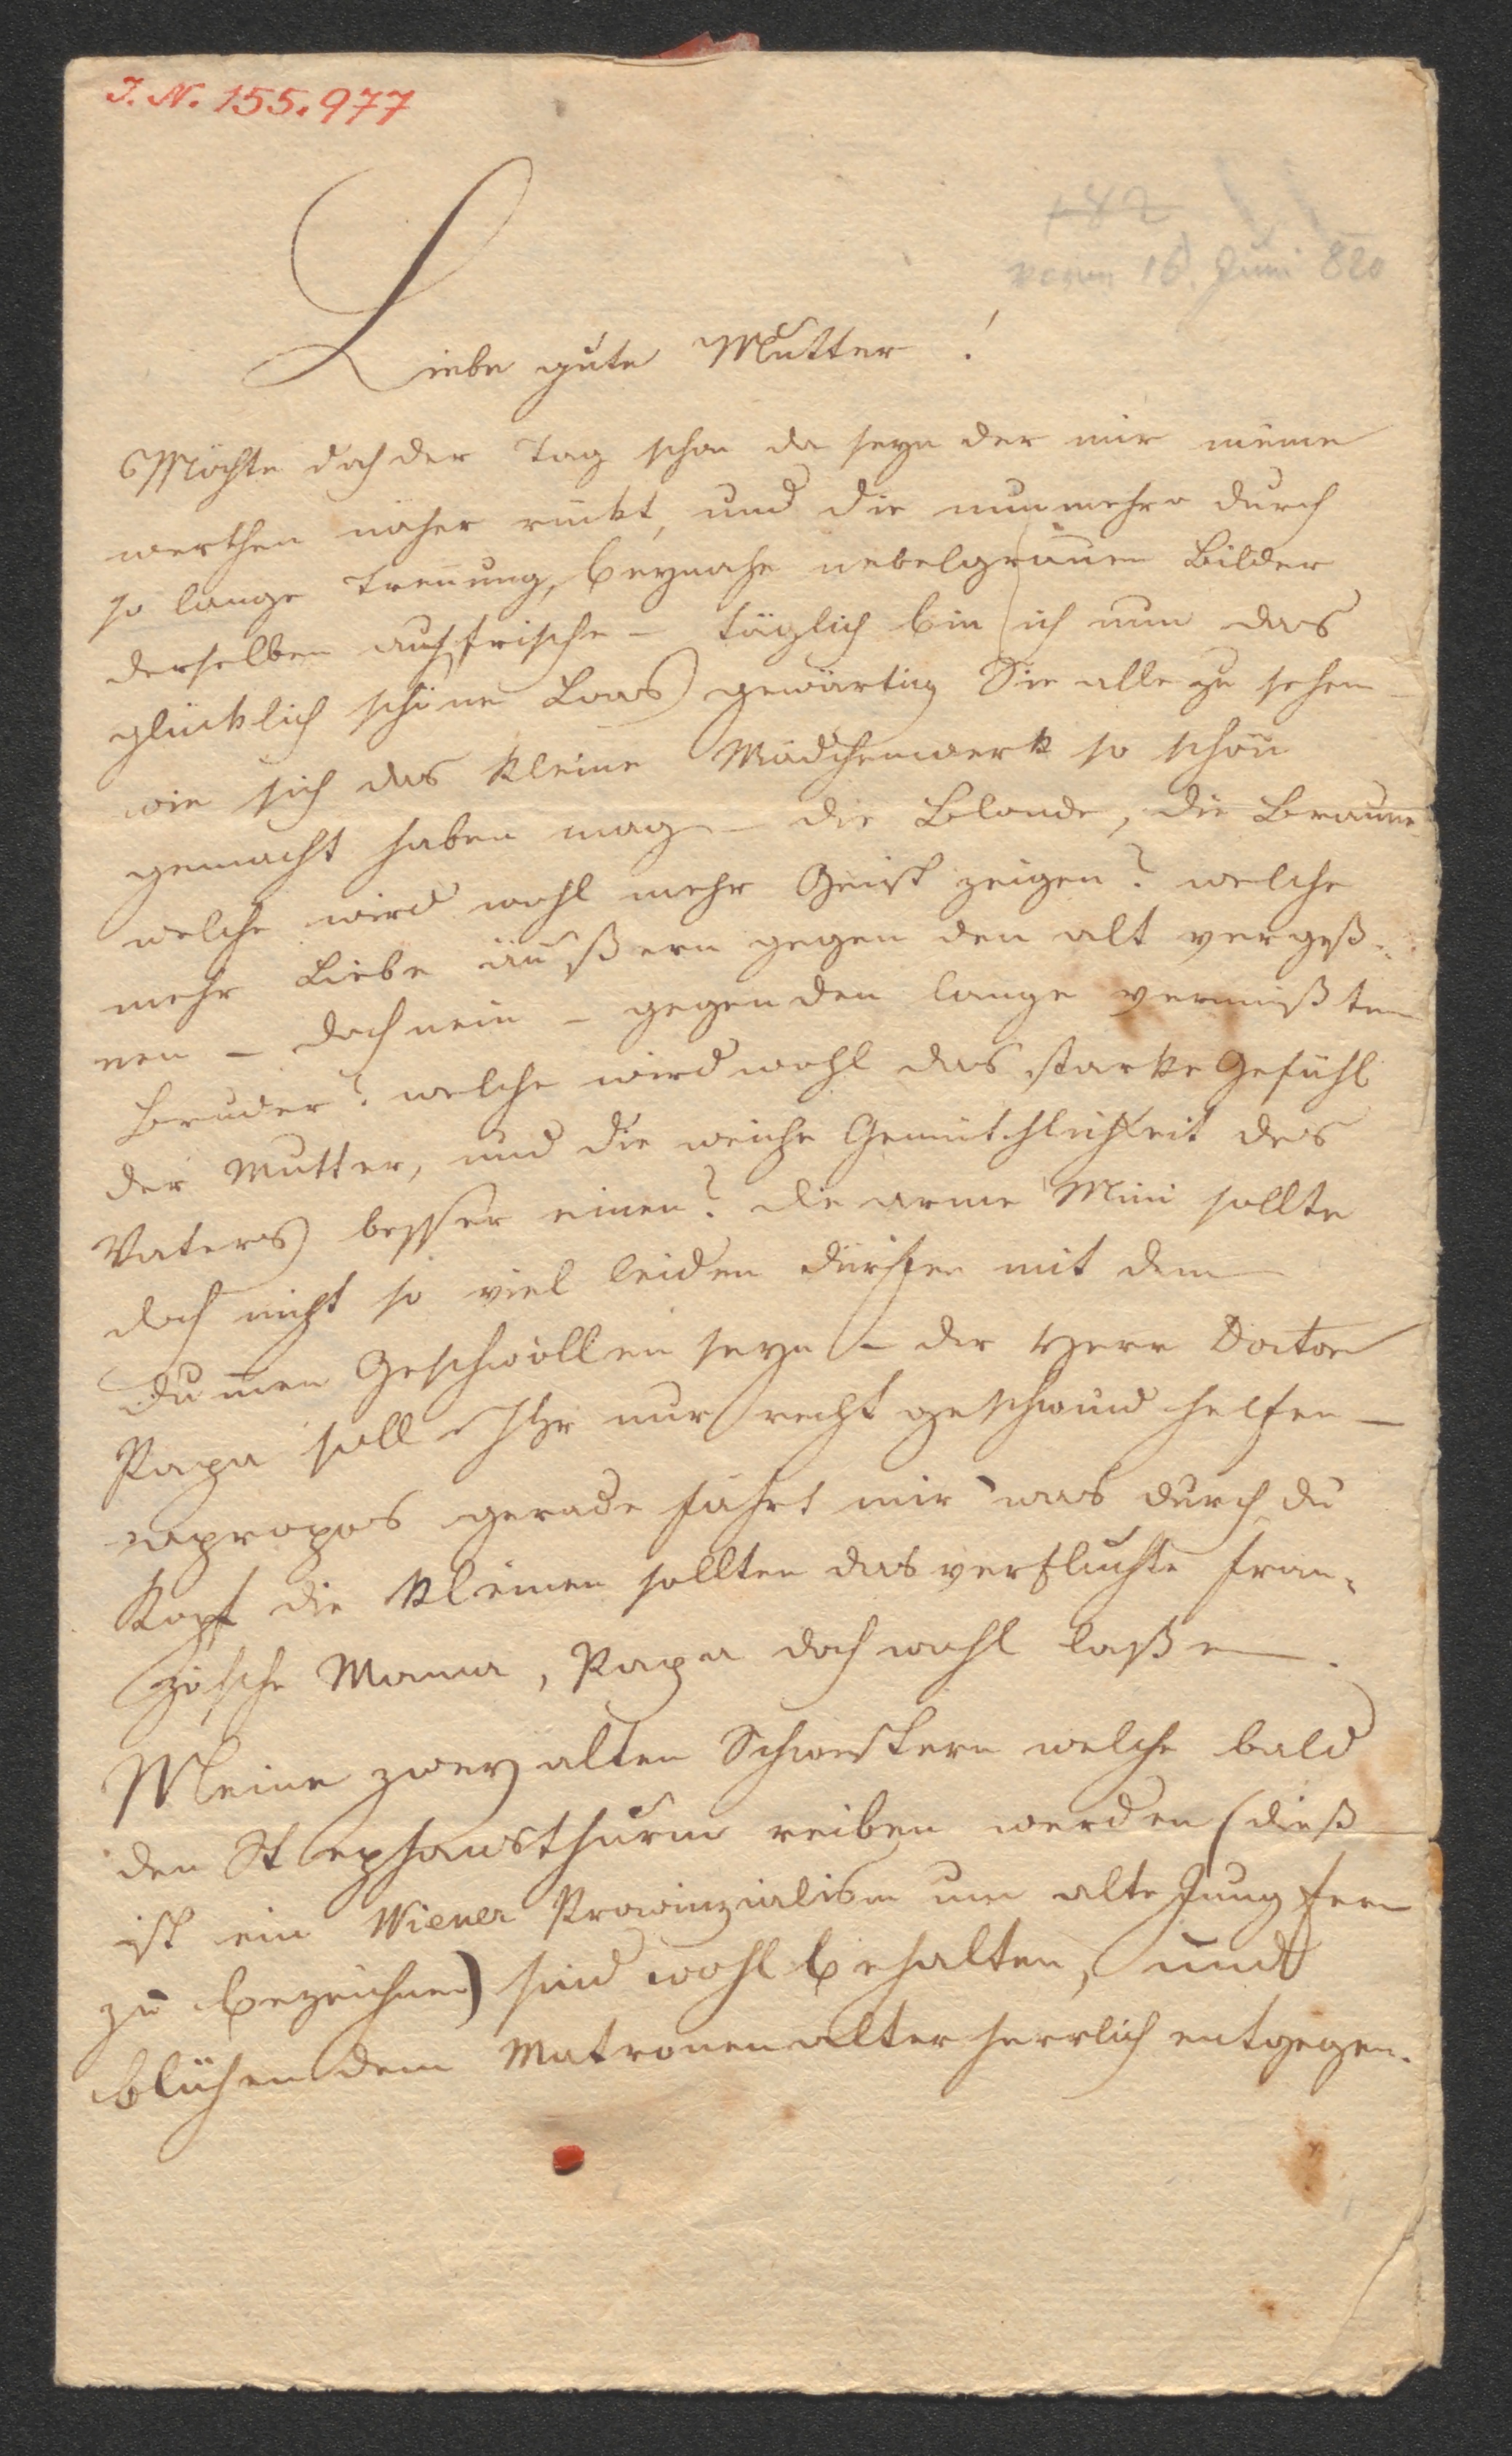 I. N. 155.977
16. Juni 820
Liebe gute Mutter!
Möchte doch der Tag schon da seyn der mir meine
werthen näher rückt, und die nunmehro durch
so lange Trennung, beynahe nebelgrauen Bilder
derselben auffrische – täglich bin ich nun das
glücklich schöne Loos gewärtig Sie alle zu sehen –
wie sich das kleine Mädchenwerk so schön
gemacht haben mag – die Blonde, die Braune
welche wird wohl mehr Geist zeigen? welche
mehr Liebe äußern gegen den alt vergeß-
nen – doch nein – gegen den lange vermißten
Bruder? welche wird wohl das starke Gefühl
der Mutter, und die weiche Gemüthlichkeit des
Vaters besser einen? die arme Mini sollte
doch nicht so viel leiden dürfen mit dem
dummen Geschwollen seyn – der Herr Doctor
Papa soll Ihr nur recht geschwind helfen –
apropos gerade fährt mir was durch du
Kopf die Kleinen sollten das verfluchte fran-
zösche Mama, Papa doch wohl laßen.
Meine zwey alten Schwestern welche bald
den Stephansthurm reiben werden (dieß
ist ein Wiener Provinzialism um alte Jungfern
zu bezeichnen) sind wohl behalten, und
blühen dem Matronenalter herrlich entgegen.